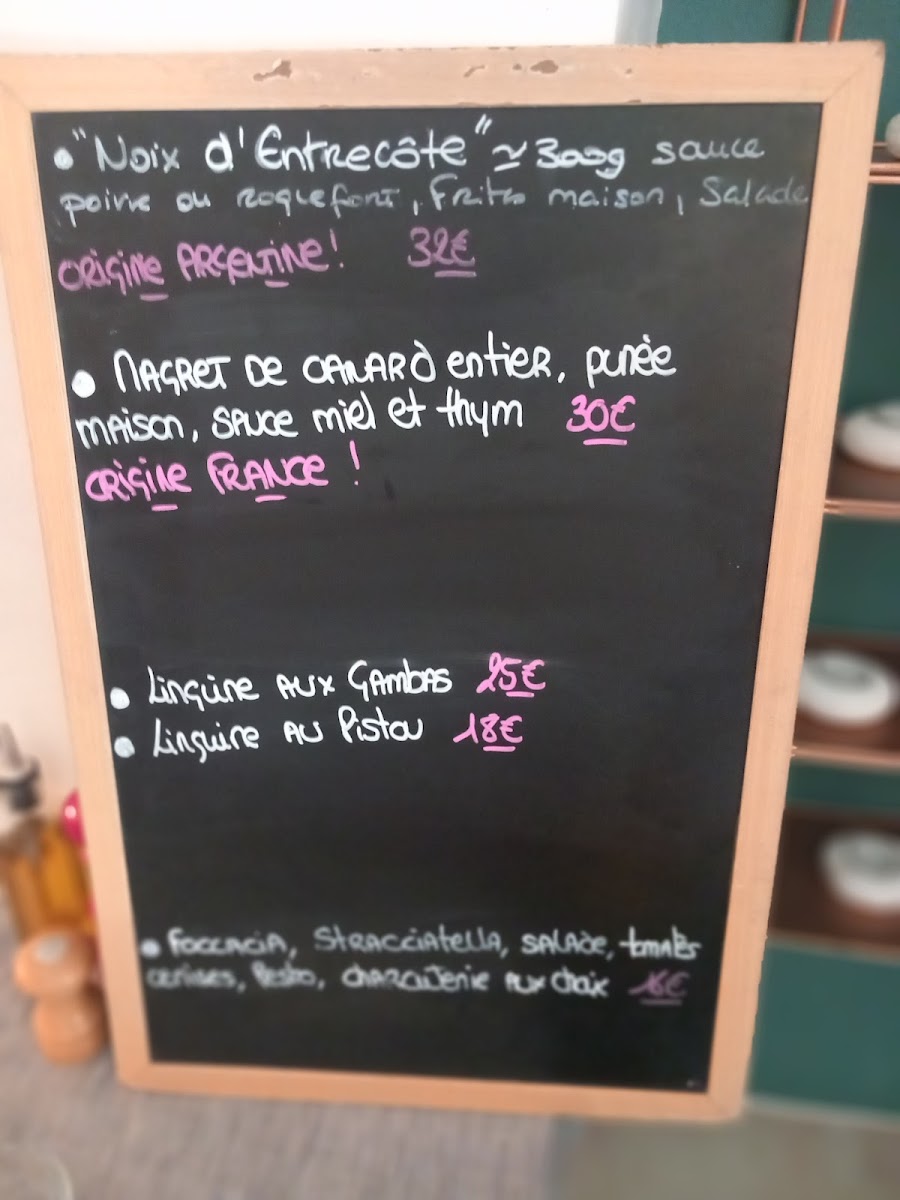 • "Noix d'Entrecôte" ≃ 300g sauce
poivre ou roquefort, Frites maison, Salade
ORIGINE ARGENTINE! 32€
• MAGRET DE CANARD entier, purée
maison, sauce miel et thym 30€
ORIGINE FRANCE !
• Linguine aux Gambas 25€
• Linguine au Pistou 18€
• Foccacia, Stracciatella, salade, tomates
cerises, Pesto, charcuterie aux choix 16€